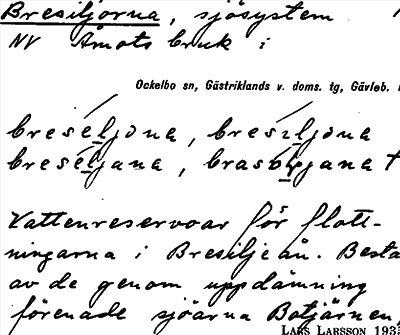 Bresiljorna, sjösystem
NV Åmots bruk i
Ockelbo sn, Gästriklands v. doms. tg, Gävleb.
breseljɔna, bresiljɔna
breseljana,
Vattenreservoar för flott-
ningarna i Bresiljeån. Bestå
av de genom uppdämning
förenade sjöarna Botjärnen,
LARS LARSSON 193